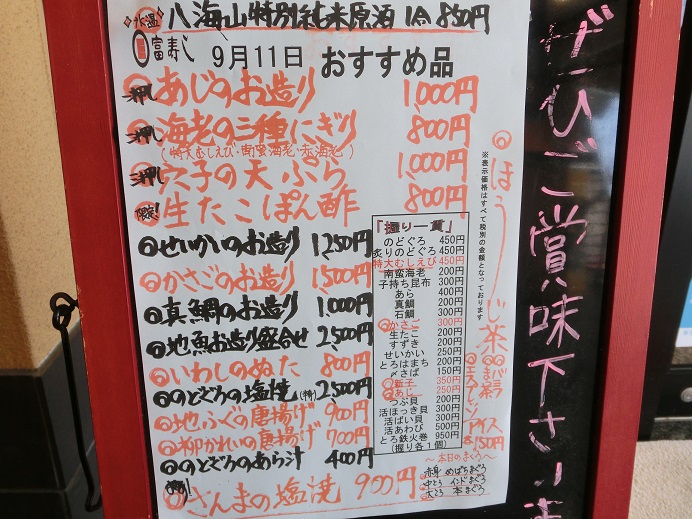 氷温 八海山特別純米原酒 1合 850円
富寿し 9月11日 おすすめ品
一押し あじのお造り 1,000円
一押し 海老の三種にぎり 800円
(特大むしえび・南蛮海老・赤海老)
一押し 穴子の天ぷら 1,000円
限定! 生たこぽん酢 800円
せいかいのお造り 1,250円
かさごのお造り 1,500円
真鯛のお造り 1,000円
地魚お造り盛合せ 2,500円
いわしのぬた 800円
のどぐろの塩焼(特) 2,500円
地ふぐの唐揚げ 900円
柳かれいの唐揚げ 700円
のどぐろのあら汁 400円
さんまの塩焼 900円
「握り一貫」
のどぐろ 450円
炙りのどぐろ 450円
特大むしえび 450円
南蛮海老 200円
子持ち昆布 300円
あら 400円
真鯛 200円
石鯛 300円
かさご 300円
生たこ 200円
すずき 200円
せいかい 250円
とろはまち 200円
〆さば 150円
新子 350円
あじ 250円
つぶ貝 200円
活ほっき貝 300円
活ばい貝 300円
活あわび 500円
とろ鉄火巻 950円
(握り各1個)
〜本日のまぐろ〜
赤身 めばちまぐろ
中とろ インドまぐろ
大とろ 本まぐろ
※表示価格はすべて税別の金額となっております
ほうじ茶
アイス
各150円
ぜひご賞味下さいま